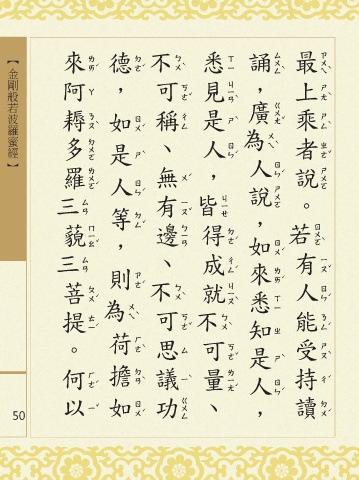 【金剛般若波羅蜜經】
最上乘者說。若有人能受持讀
誦，廣為人說，如來悉知是人，
悉見是人，皆得成就不可量、
不可稱、無有邊、不可思議功
德，如是人等，則為荷擔如
來阿耨多羅三藐三菩提。何以
50